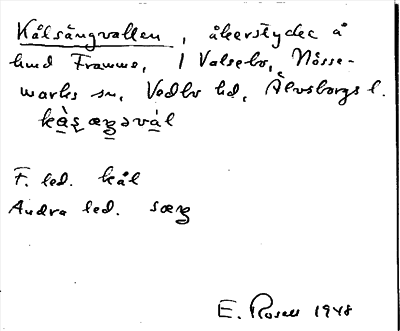 Kålsängvallen, åkerstycke å
hmd Framme, 1 Valsebo, Nösse-
marks sn, Vedbo hd, Älvsborgs l.
kàʂæŋəvàl
F. led. kål
Andra led. sæŋ
E. Rosell 1948